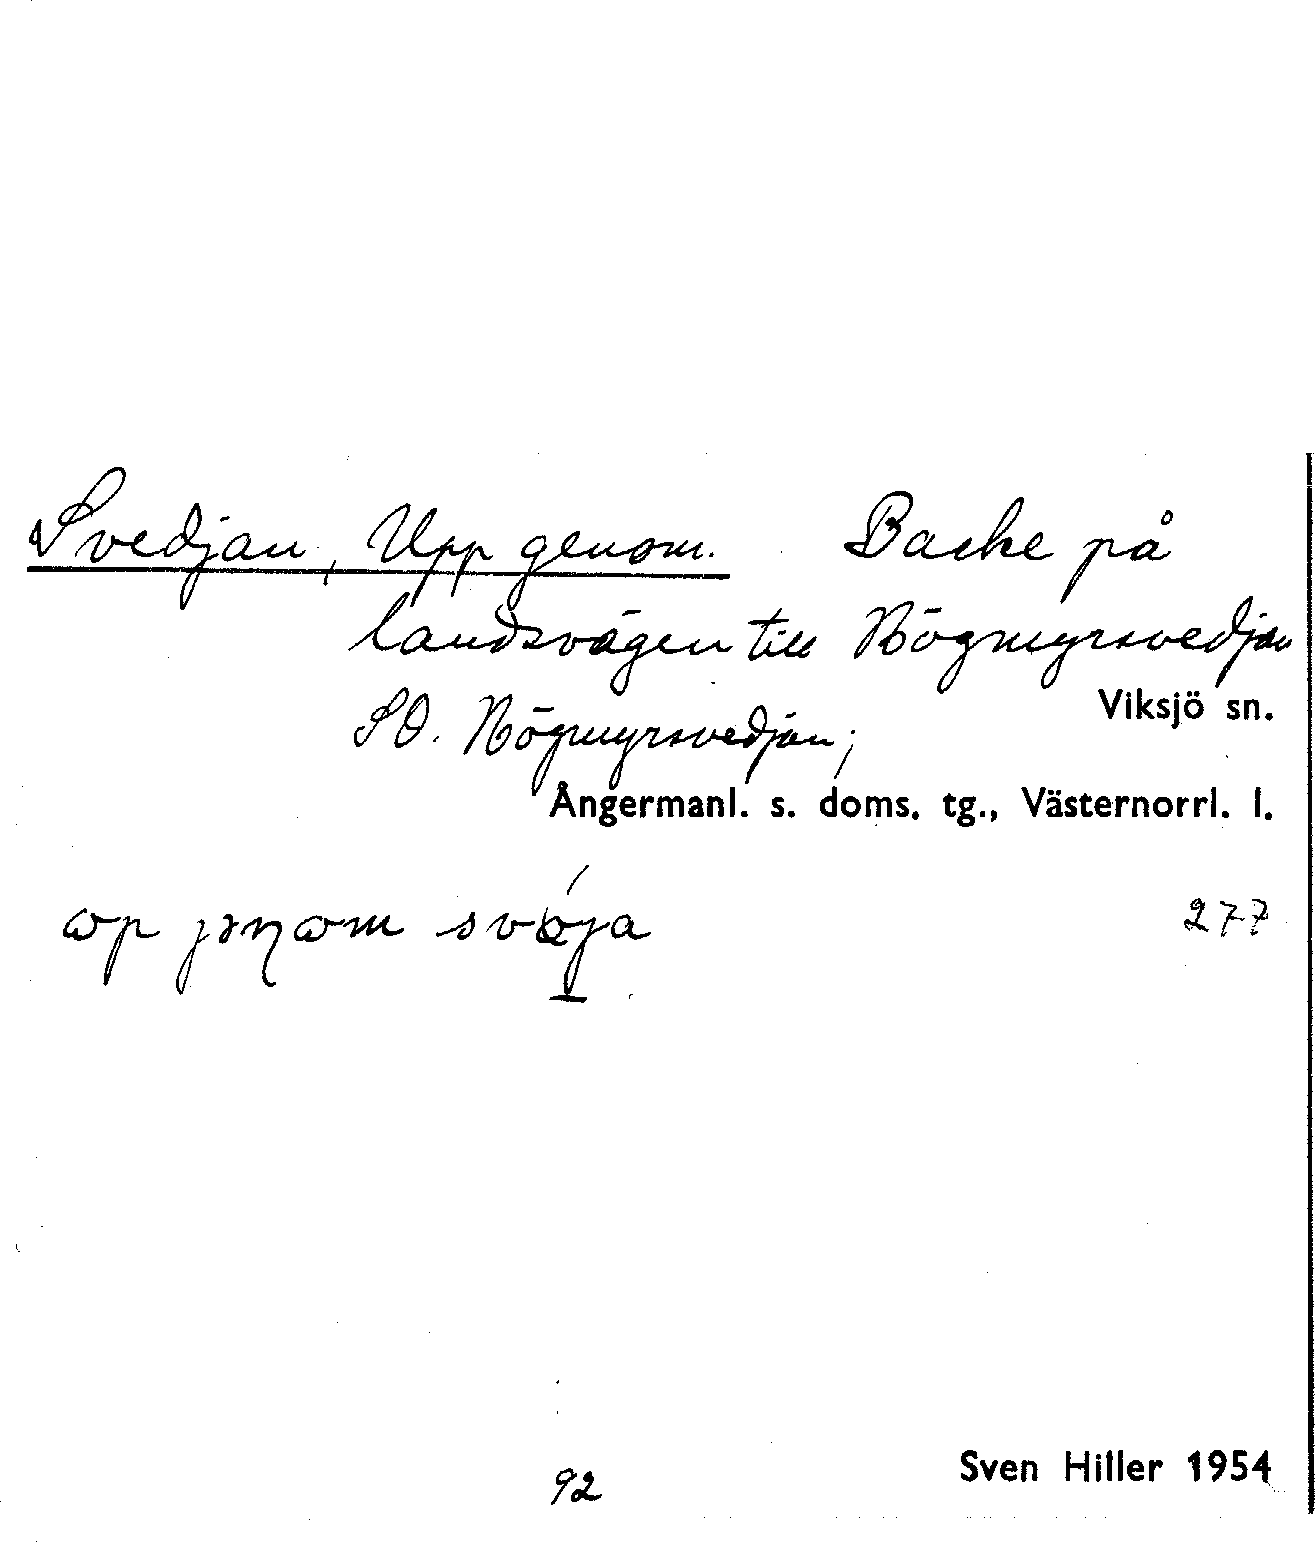 Svedjan, Upp genom. Backe på
landsvägen till Högmyrsvedjan
SO. Högmyrsvedjan;
Viksjö sn.
Ångermanl. s. doms. tg., Västernorrl. l.
277
92
Sven Hiller 1954